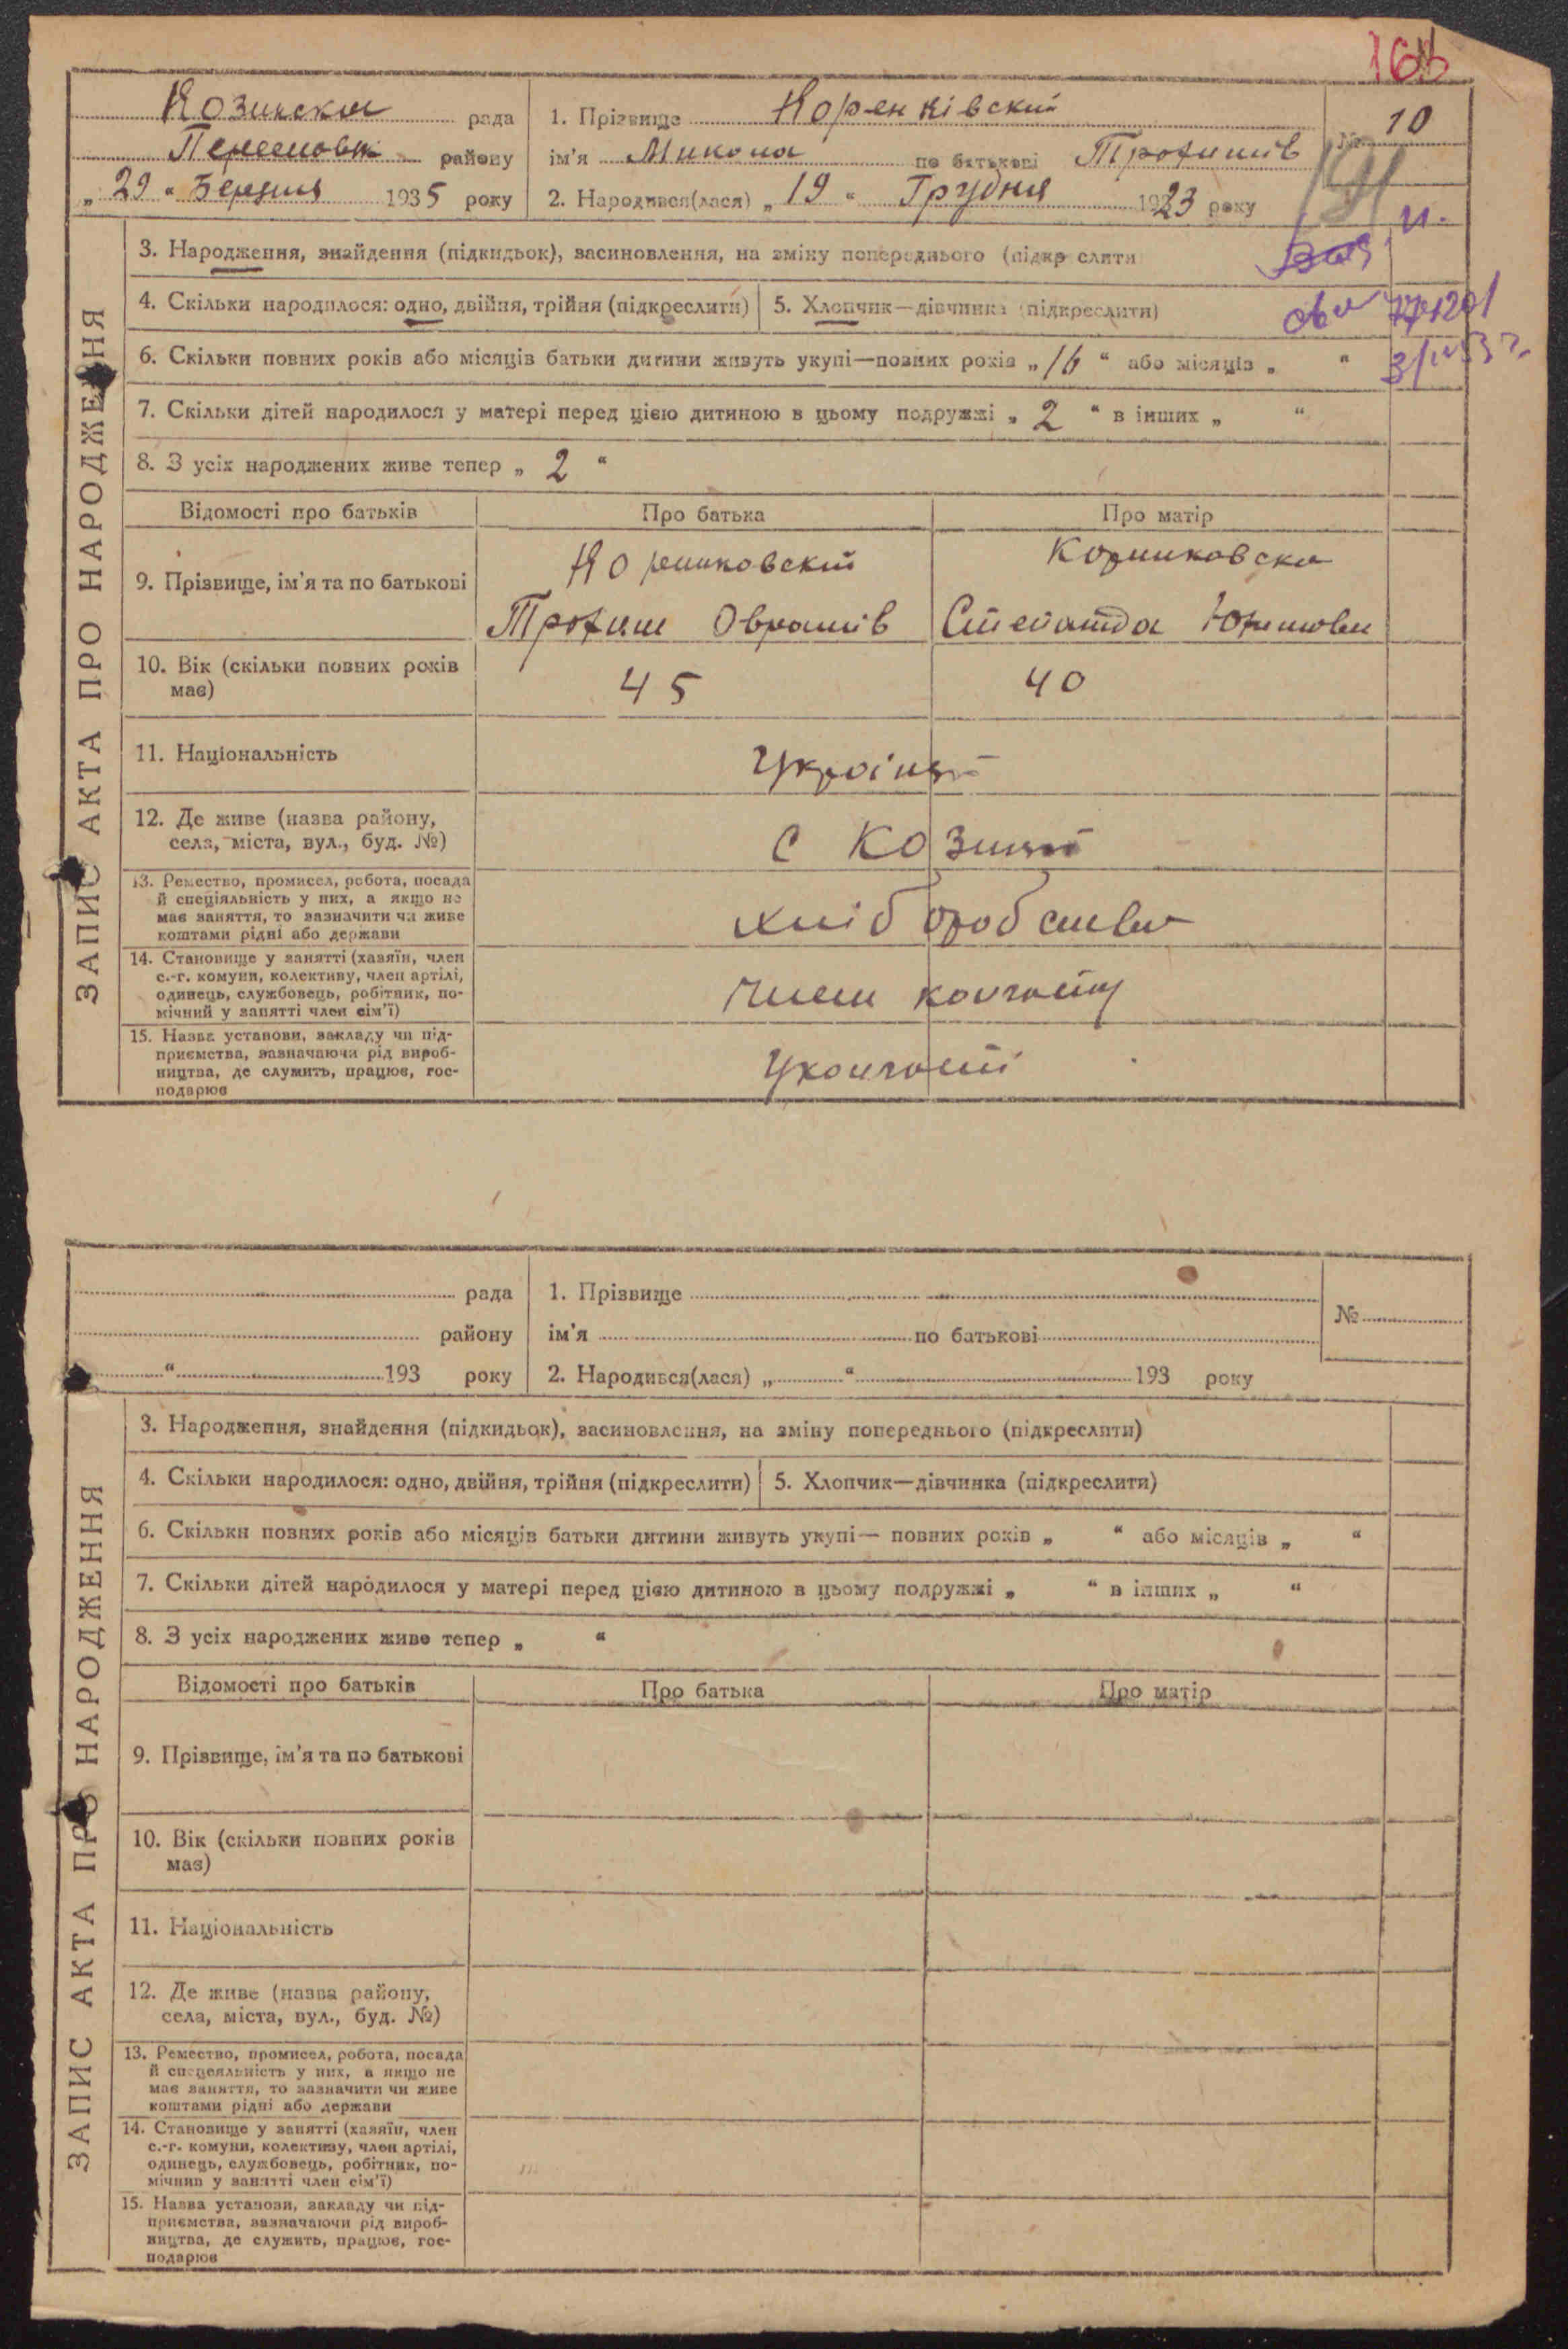 165
Козинска рада
1. Прізвище Коренківский
№ 10
району
ім'я Микола по батькові Трохимів
„ 29 “ Березня 1935 року
2. Народився(лася) „ 19 “ Грудня 1923 року
3. Народження, знайдення (підкидьок), засиновлення, на зміну попереднього (підкреслити
4. Скільки народилося: одно, двійня, трійня (підкреслити)
5. Хлопчик—дівчинка (підкреслити)
6. Скільки повних років або місяців батьки дитини живуть укупі—повних років „ 16 “ або місяців „ “
7. Скільки дітей народилося у матері перед цією дитиною в цьому подружжі „ 2 “ в інших „ “
8. З усіх народжених живе тепер „ 2 “
ЗАПИС АКТА ПРО НАРОДЖЕННЯ
Відомості про батьків
Про батька
Про матір
9. Прізвище, ім'я та по батькові
Трохим
10. Вік (скільки повних років
має)
45
40
11. Національність
12. Де живе (назва району,
села, міста, вул., буд. №)
с
13. Ремество, промисел, робота, посада
й спеціяльність у них, а якщо не
має заняття, то зазначити чи живе
коштами рідні або держави
хліборобство
14. Становище у занятті (хазяїн, член
с.-г. комуни, колективу, член артілі,
одинець, службовець, робітник, по-
мічний у занятті член сім'ї)
член колгоспу
15. Назва установи, закладу чи під-
приємства, зазначаючи рід вироб-
ництва, де служить, працює, гос-
подарює
У колгоспі
рада
1. Прізвище
№
району
ім'я по батькові
“ 193 року
2. Народився(лася) „ “ 193 року
3. Народження, знайдення (підкидьок), засиновлення, на зміну попереднього (підкреслити)
4. Скільки народилося: одно, двійня, трійня (підкреслити)
5. Хлопчик—дівчинка (підкреслити)
6. Скільки повних років або місяців батьки дитини живуть укупі— повних років „ “ або місяців „ “
7. Скільки дітей народилося у матері перед цією дитиною в цьому подружжі „ “ в інших „ “
8. З усіх народжених живе тепер „ “
ЗАПИС АКТА ПРО НАРОДЖЕННЯ
Відомості про батьків
Про батька
Про матір
9. Прізвище, ім'я та по батькові
10. Вік (скільки повних років
має)
11. Національність
12. Де живе (назва району,
села, міста, вул., буд. №)
13. Ремество, промисел, робота, посада
й спецеяльність у них, а якщо не
має заняття, то зазначити чи живе
коштами рідні або держави
14. Становище у занятті (хазяїн, член
с.-г. комуни, колективу, член артілі,
одинець, службовець, робітник, по-
мічнип у занятті член сім'ї)
15. Назва установи, закладу чи під-
приємства, зазначаючи рід вироб-
ництва, де служить, працює, гос-
подарює